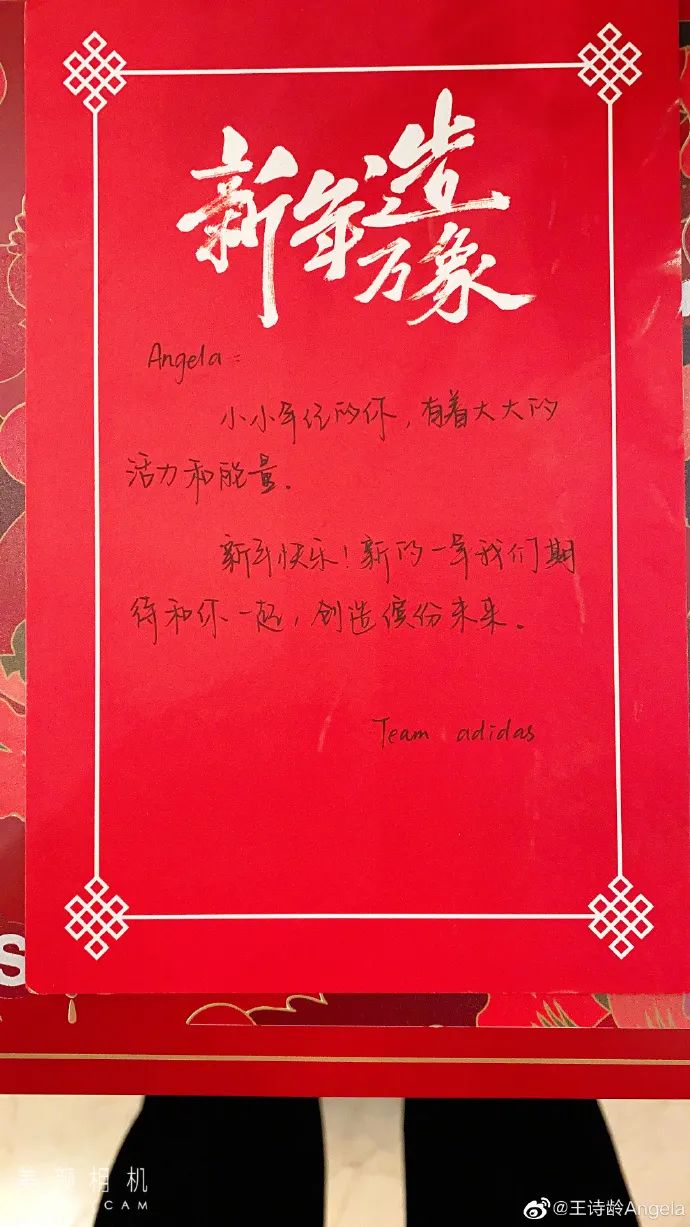 新年造
万象
Angela:
小小年纪的你，有着大大的
活力和能量.
新年快乐！新的一年我们期
待和你一起，创造缤纷未来。
Team adidas
S
美颜相机
CAM
@王诗龄Angela